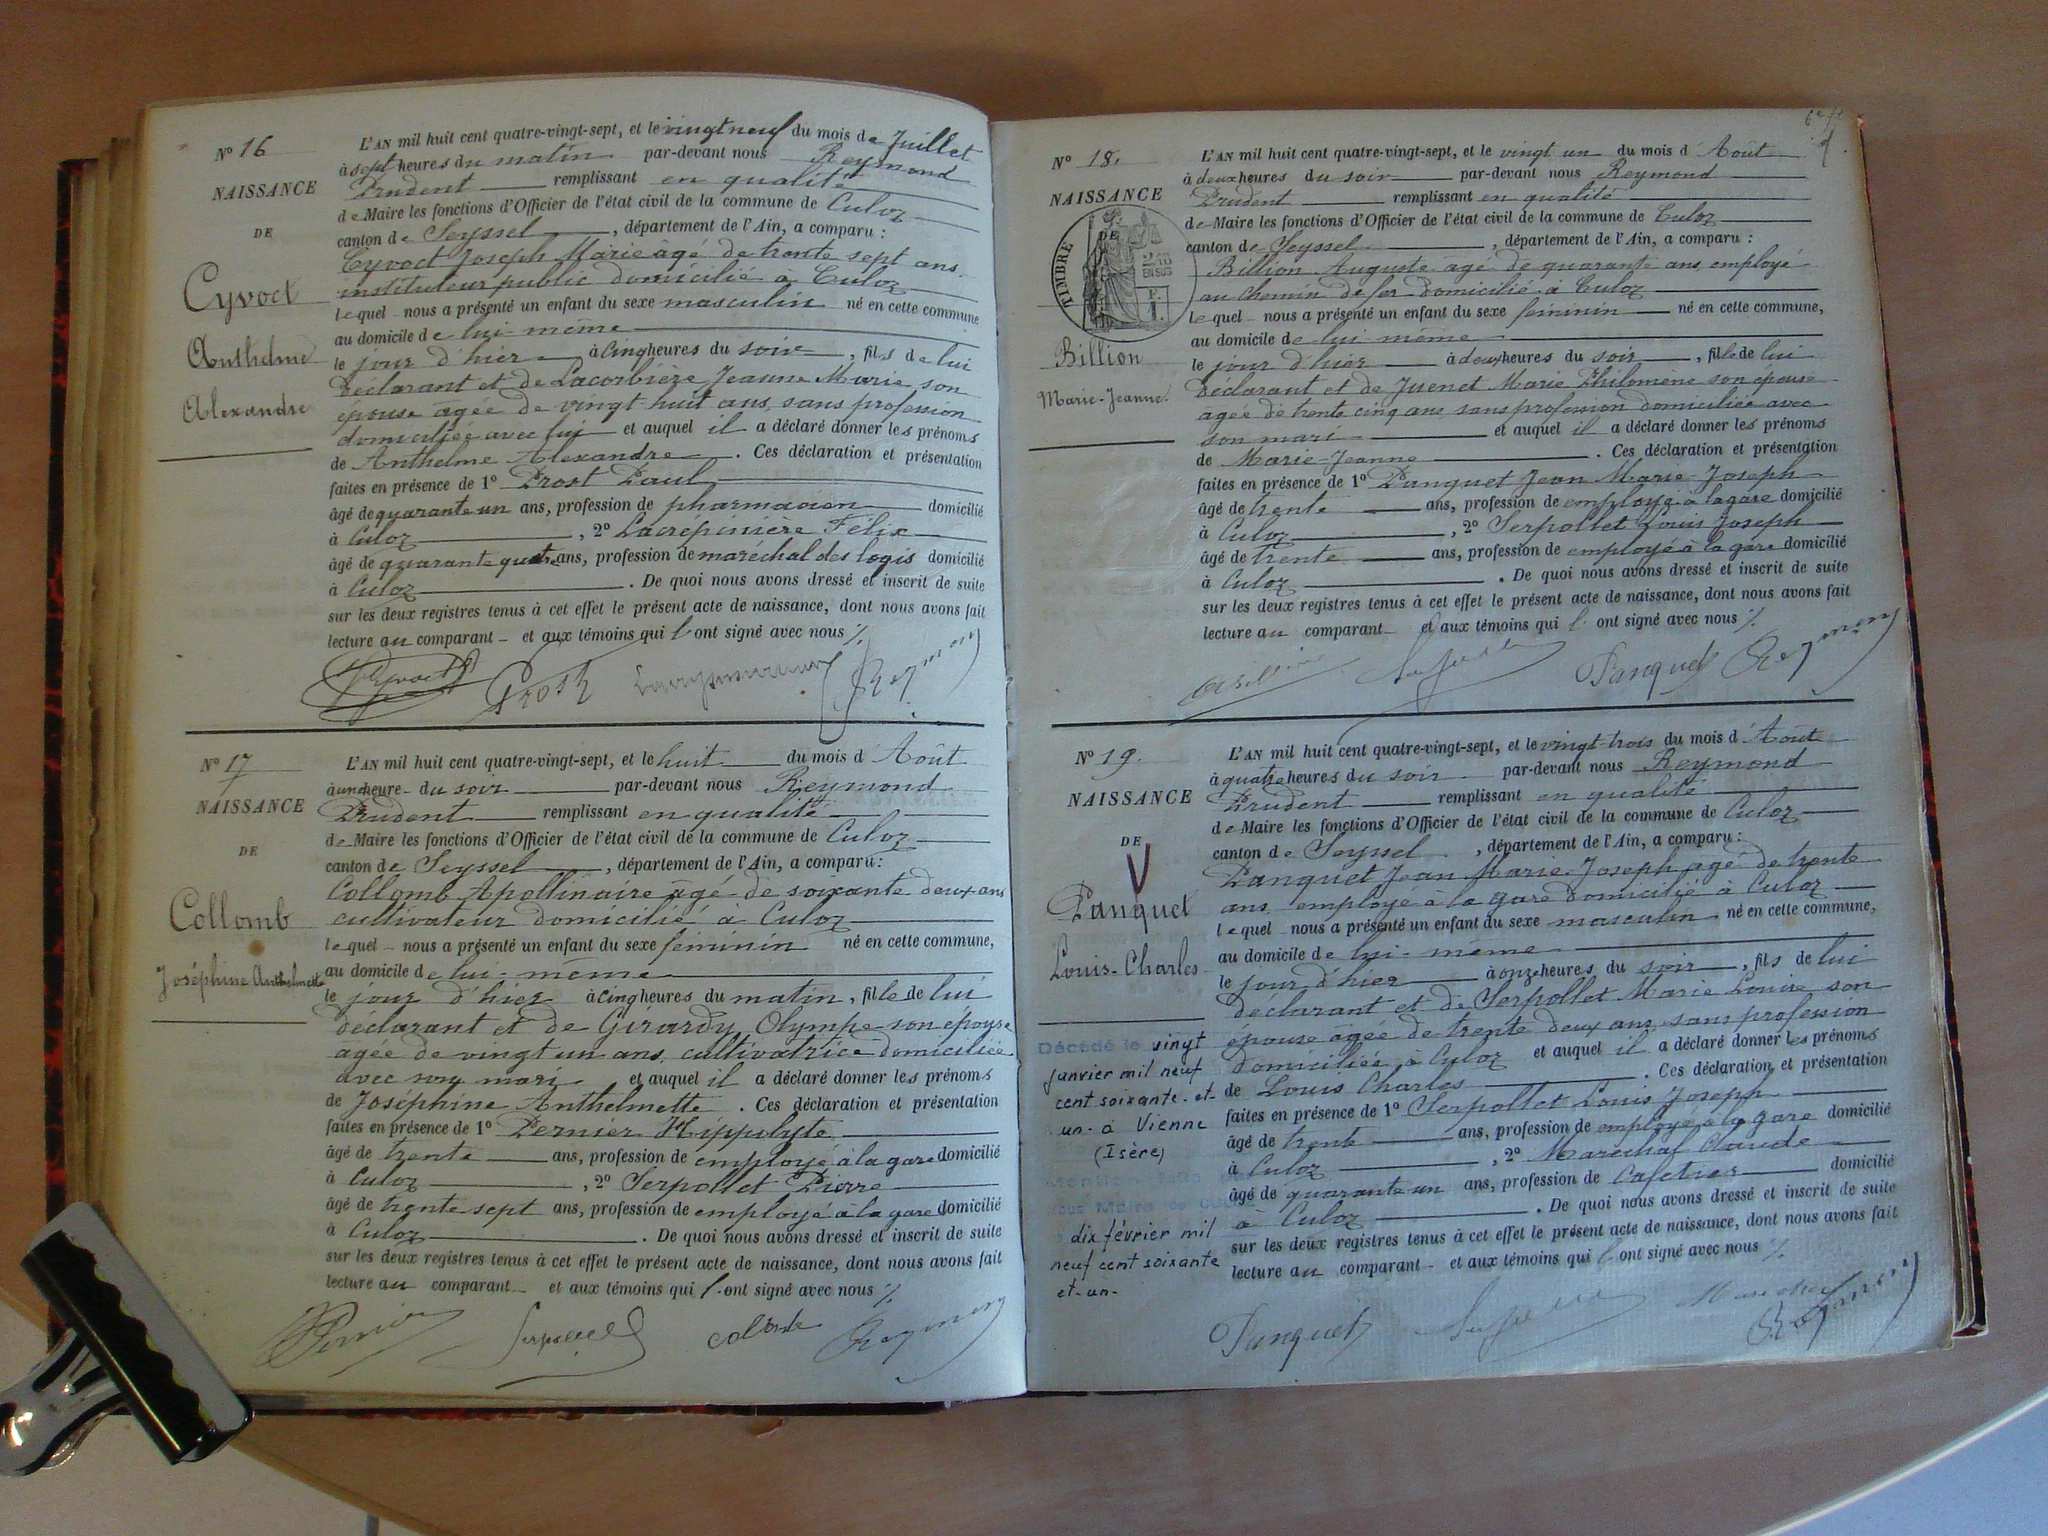 Nº 16
NAISSANCE
DE
Cyvoct
Anthelme
Alexandre
L'AN mil huit cent quatre-vingt-sept, et le vingt neuf du mois de Juillet
à sept heures du matin par-devant nous Reymond
Prudent remplissant en qualité
de Maire les fonctions d'Officier de l'état civil de la commune de Culoz
canton de Seyssel, département de l'Ain, a comparu :
Cyvoct Joseph Marie âgé de trente sept ans
instituteur public domicilié à Culoz
lequel nous a présenté un enfant du sexe masculin né en cette commune
au domicile de lui-même
le jour d'hier à cinq heures du soir, fils de lui
déclarant et de Lacorbière Jeanne Marie son
épouse âgée de vingt huit ans sans profession
domiciliée avec lui et auquel il a déclaré donner les prénoms
de Anthelme Alexandre. Ces déclaration et présentation
faites en présence de 1º Prost Paul
âgé de quarante un ans, profession de pharmacien domicilié
à Culoz, 2º Lacrepiniere Félix
âgé de quarante quatre ans, profession de maréchal des logis domicilié
à Culoz. De quoi nous avons dressé et inscrit de suite
sur les deux registres tenus à cet effet le présent acte de naissance, dont nous avons fait
lecture au comparant et aux témoins qui l'ont signé avec nous %
Cyvoct Prost Reymond
Nº 17
NAISSANCE
DE
Collomb
Joséphine Anthelmette
L'AN mil huit cent quatre-vingt-sept, et le huit du mois d'Août
à une heure du soir par-devant nous Reymond
Prudent remplissant en qualité
de Maire les fonctions d'Officier de l'état civil de la commune de Culoz
canton de Seyssel, département de l'Ain, a comparu :
Collomb Apollinaire âgé de soixante deux ans
cultivateur domicilié à Culoz
lequel nous a présenté un enfant du sexe féminin né en cette commune,
au domicile de lui-même
le jour d'hier à cinq heures du matin, fille de lui
déclarant et de Girardy Olympe son épouse
âgée de vingt un ans cultivatrice domiciliée
avec son mari et auquel il a déclaré donner les prénoms
de Joséphine Anthelmette. Ces déclaration et présentation
faites en présence de 1º Pernier Hippolyte
âgé de trente ans, profession de employé à la gare domicilié
à Culoz, 2º Serpollet Pierre
âgé de trente sept ans, profession de employé à la gare domicilié
à Culoz. De quoi nous avons dressé et inscrit de suite
sur les deux registres tenus à cet effet le présent acte de naissance, dont nous avons fait
lecture au comparant et aux témoins qui l'ont signé avec nous %
Pernier Serpollet Reymond
Nº 18.
NAISSANCE
DE
TIMBRE
2/10
EN SUS
Billion
Marie-Jeanne
L'AN mil huit cent quatre-vingt-sept, et le vingt un du mois d'Août
à deux heures du soir par-devant nous Reymond
Prudent remplissant en qualité
de Maire les fonctions d'Officier de l'état civil de la commune de Culoz
canton de Seyssel, département de l'Ain, a comparu :
Billion Auguste âgé de quarante ans employé
au chemin de fer domicilié à Culoz
lequel nous a présenté un enfant du sexe féminin né en cette commune,
au domicile de lui même
le jour d'hier à deux heures du soir, fille de lui
déclarant et de Juenet Marie Philomène son épouse
âgée de trente cinq ans sans profession domiciliée avec
son mari et auquel il a déclaré donner les prénoms
de Marie-Jeanne. Ces déclaration et présentation
faites en présence de 1º Panquet Jean Marie Joseph
âgé de trente ans, profession de employé à la gare domicilié
à Culoz, 2º Serpollet Louis Joseph
âgé de trente ans, profession de employé à la gare domicilié
à Culoz. De quoi nous avons dressé et inscrit de suite
sur les deux registres tenus à cet effet le présent acte de naissance, dont nous avons fait
lecture au comparant et aux témoins qui l'ont signé avec nous %
Billion Panquet Reymond
Nº 19.
NAISSANCE
DE
Panquet
Louis-Charles
Décédé le vingt
janvier mil neuf
cent soixante-et-
un à Vienne
(Isère)
Mention faite
nous Maire de Culoz
dix février mil
neuf cent soixante
et-un-
L'AN mil huit cent quatre-vingt-sept, et le vingt-trois du mois d'Août
à quatre heures du soir par-devant nous Reymond
Prudent remplissant en qualité
de Maire les fonctions d'Officier de l'état civil de la commune de Culoz
canton de Seyssel, département de l'Ain, a comparu :
Panquet Jean Marie Joseph âgé de trente
ans employé à la gare domicilié à Culoz
lequel nous a présenté un enfant du sexe masculin né en cette commune,
au domicile de lui-même
le jour d'hier à onze heures du soir, fils de lui
déclarant et de Serpollet Marie Louise son
épouse âgée de trente deux ans sans profession
domiciliée à Culoz et auquel il a déclaré donner les prénoms
de Louis Charles. Ces déclaration et présentation
faites en présence de 1º Serpollet Louis Joseph
âgé de trente ans, profession de employé à la gare domicilié
à Culoz, 2º Maréchal Claude
âgé de quarante un ans, profession de Cafetier domicilié
à Culoz. De quoi nous avons dressé et inscrit de suite
sur les deux registres tenus à cet effet le présent acte de naissance, dont nous avons fait
lecture au comparant et aux témoins qui l'ont signé avec nous %
Panquet Reymond